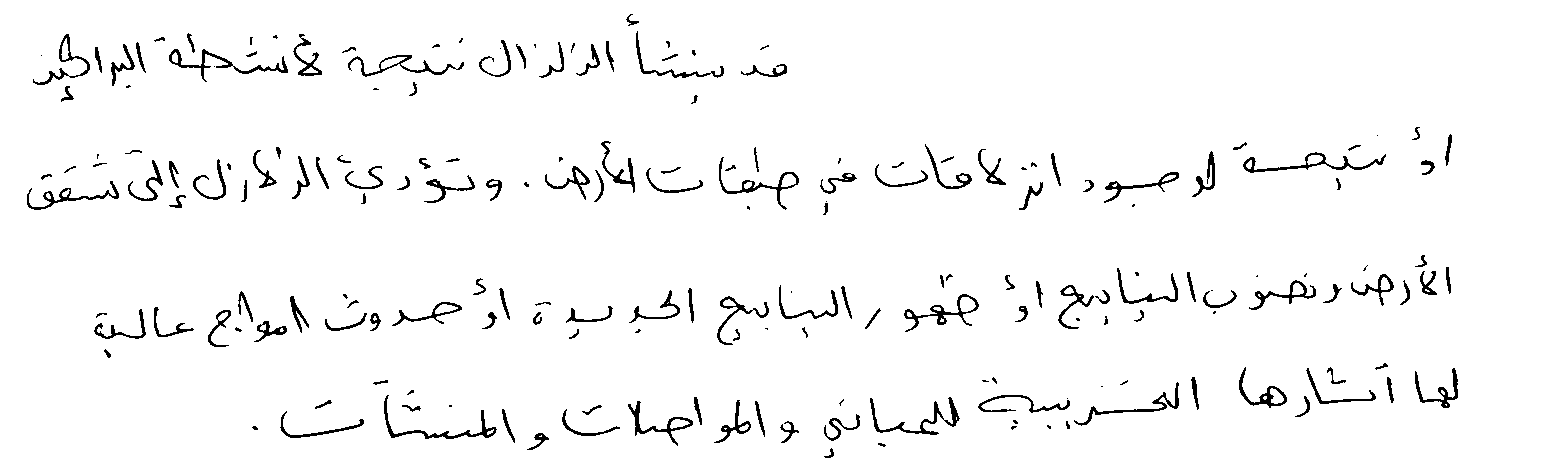 قد ينشأ الزلزال نتيجة لأنشطة البراكين
أو نتيجة لوجود انزلاقات في طبقات الأرض. وتؤدي الزلازل إلى تشقق
الأرض ونضوب الينابيع أو ظهور الينابيع الجديدة أو حدوث امواج عالية
لها آثارها التخريبية للمباني والمواصلات والمنشآت.